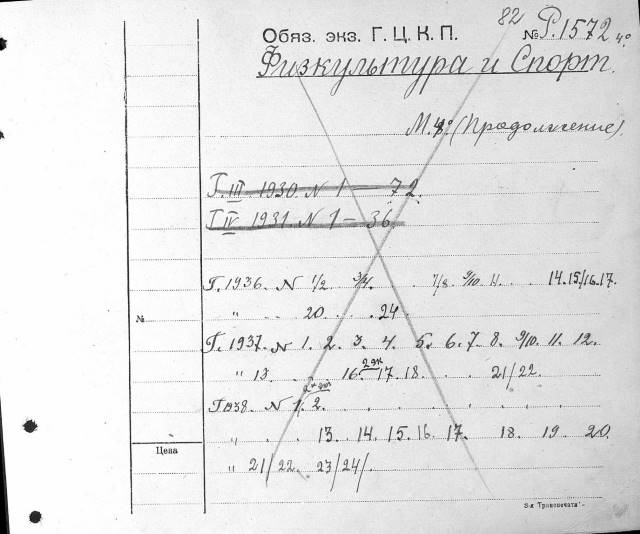 82
Обяз. экз. Г. Ц. К. П. № Р.1572 4°.
Физкультура и Спорт.
М. 4° (Продолжение).
Г. III. 1930. N 1 — 72.
Г IV 1931. N 1 — 36.
Г. 1936. N 1/2 3/4. . 7/8. 9/10 11. . . 14.15/16.17.
" . . 20. . . 24
№
Г. 1937. N 1. 2. 3. 4. 5. 6. 7. 8. 9/10. 11. 12.
2 эк
" 13 . . 16. 17. 18 . . . 21/22.
Г 1938. N 1. 2. . . . . . . .
" . . . 13. 14. 15. 16. 17. 18. 19 20.
Цена
" 21/22. 23/24/.
3-я Транспечати